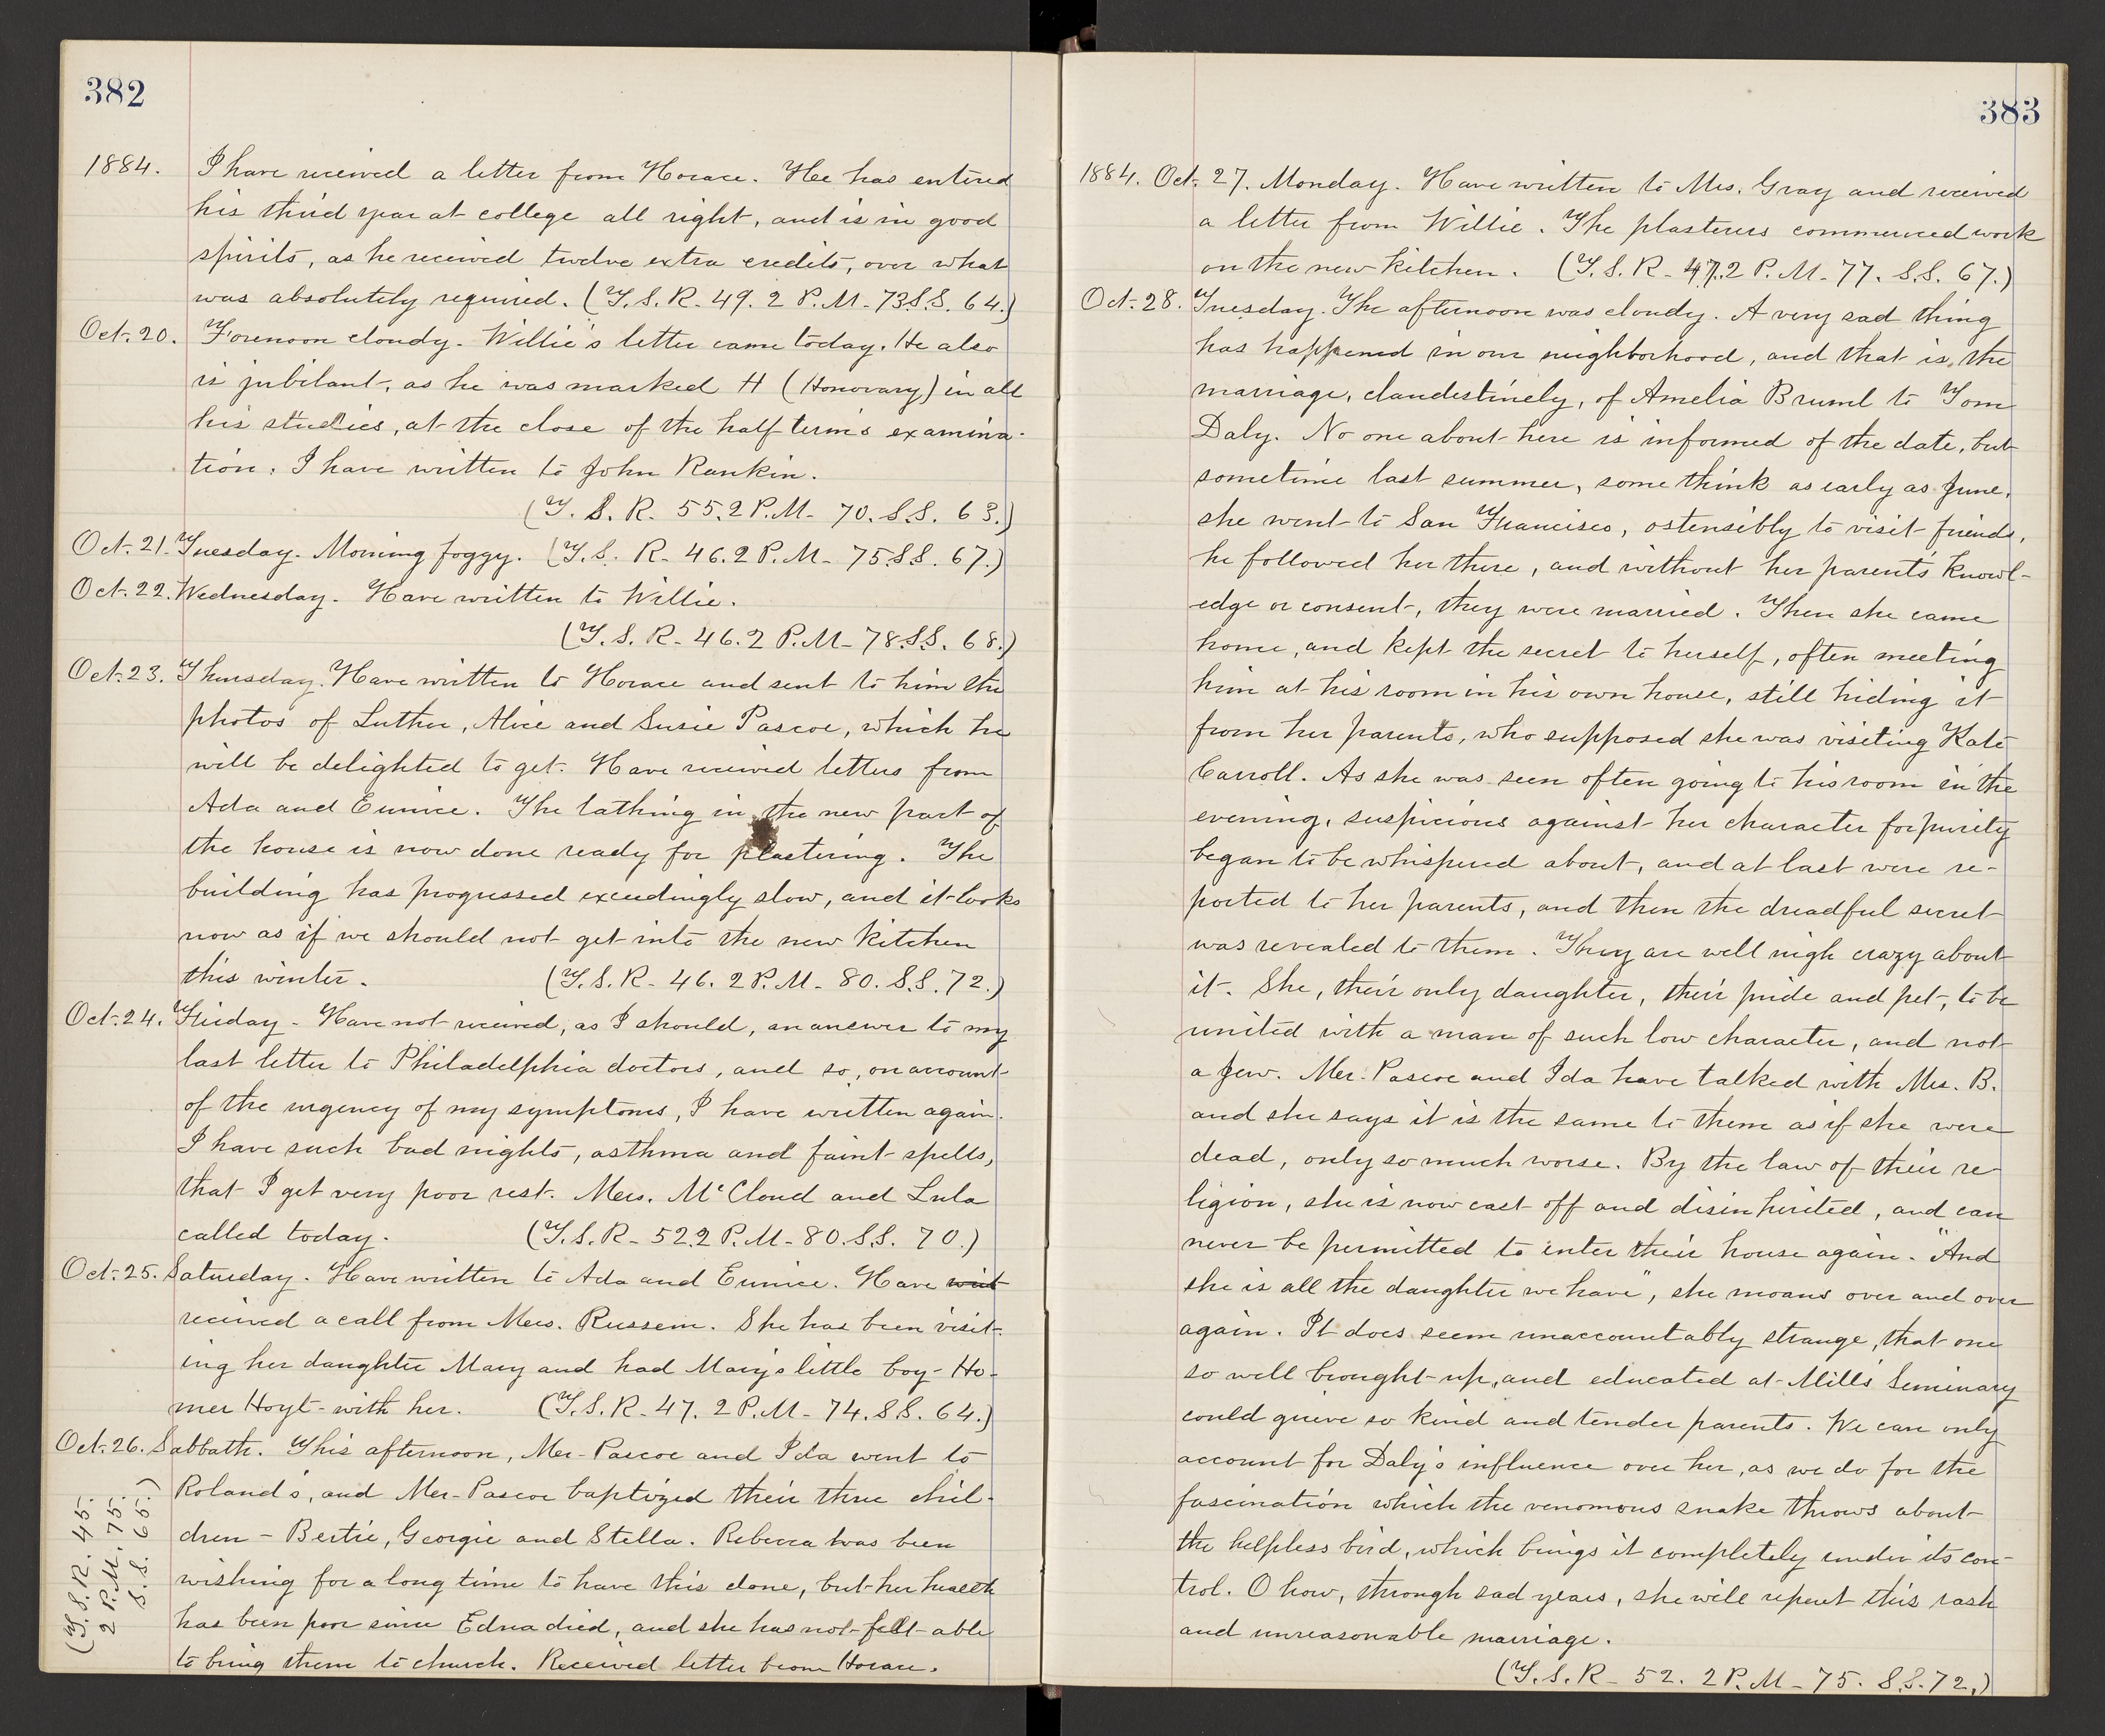 382
1884. I have received a letter from Horace. Hee has entered
his third year at college all right, and is in good
spirits, as he received twelve extra credits, over what
was absolutely required. (T. S. R - 49. 2 P. M - 73 S. S. 64.)
Oct. 20. Forenoon cloudy. Willie's letter came today. He also
is jubilant, as he was marked H (Honorary) in all
his studies, at the close of the half term's examina-
tion. I have written to John Rankin.
(T. S. R. 55. 2 P. M - 70. S. S. 63.)
Oct. 21. Tuesday. Morning foggy. (T. S. R - 46. 2 P. M - 75 S. S. 67.)
Oct. 22. Wednesday. Have written to Willie.
(T. S. R - 46. 2 P. M - 78 S. S. 68.)
Oct. 23. Thursday. Have written to Horace and sent to him the
photos of Luther, Alice and Susie Pascoe, which he
will be delighted to get. Have received letters from
Ada and Eunice. The lathing in the new part of
the house is now done ready for plastering. The
building has progressed exceedingly slow, and it looks
now as if we should not get into the new kitchen
this winter. (T. S. R - 46. 2 P. M - 80. S. S. 72.)
Oct. 24. Friday - Have not received, as I should, an answer to my
last letter to Philadelphia doctors, and so, on account
of the urgency of my symptoms, I have written again.
I have such bad nights, asthma and faint spells,
that I get very poor rest. Mrs. McCloud and Lula
called today. (T. S. R - 52. 2 P. M - 80. S. S. 70.)
Oct. 25. Saturday. Have written to Ada and Eunice. Have writ
received a call from Mrs. Russem. She has been visit-
ing her daughter Mary and had Mary's little boy - Ho-
mer Hoyt - with her. (T. S. R - 47. 2 P. M - 74. S. S. 64.)
Oct. 26. Sabbath. This afternoon, Mr. Pascoe and Ida went to
Roland's, and Mr. Pascoe baptized their three chil-
dren - Bertie, Georgie and Stella. Rebecca has been
wishing for a long time to have this done, but her health
has been poor since Edna died, and she has not felt able
to bring them to church. Received letter from Horace.
(T. S. R. 45.
2 P. M. 75.
S. S. 65.)
383
1884. Oct. 27. Monday. Have written to Mrs. Gray and received
a letter from Willie. The plasterers commenced work
on the new kitchen. (T. S. R - 47. 2 P. M - 77. S. S. 67.)
Oct. 28. Tuesday. The afternoon was cloudy. A very sad thing
has happened in our neighborhood, and that is, the
marriage, clandestinely, of Amelia Bruml to Tom
Daly. No one about here is informed of the date, but
sometime last summer, some think as early as June,
she went to San Francisco, ostensibly to visit friends,
he followed her there, and without her parents' knowl-
edge or consent, they were married. Then she came
home, and kept the secret to herself, often meeting
him at his room in his own house, still hiding it
from her parents, who supposed she was visiting Kate
Carroll. As she was seen often going to his room in the
evening, suspicions against her character for purity
began to be whispered about, and at last were re-
ported to her parents, and then the dreadful secret
was revealed to them. They are well nigh crazy about
it. She, their only daughter, their pride and pet, to be
united with a man of such low character, and not
a Jew. Mr. Pascoe and Ida have talked with Mrs. B.
and she says it is the same to them as if she were
dead, only so much worse. By the law of their re-
ligion, she is now cast off and disinherited, and can
never be permitted to enter their house again. "And
she is all the daughter we have", she moans over and over
again. It does seem unaccountably strange, that one
so well brought up, and educated at Mills' Seminary
could grieve so kind and tender parents. We can only
account for Daly's influence over her, as we do for the
fascination which the venomous snake throws about
the helpless bird, which brings it completely under its con-
trol. O how, through sad years, she will repent this rash
and unreasonable marriage.
(T. S. R - 52. 2 P. M - 75. S. S. 72.)